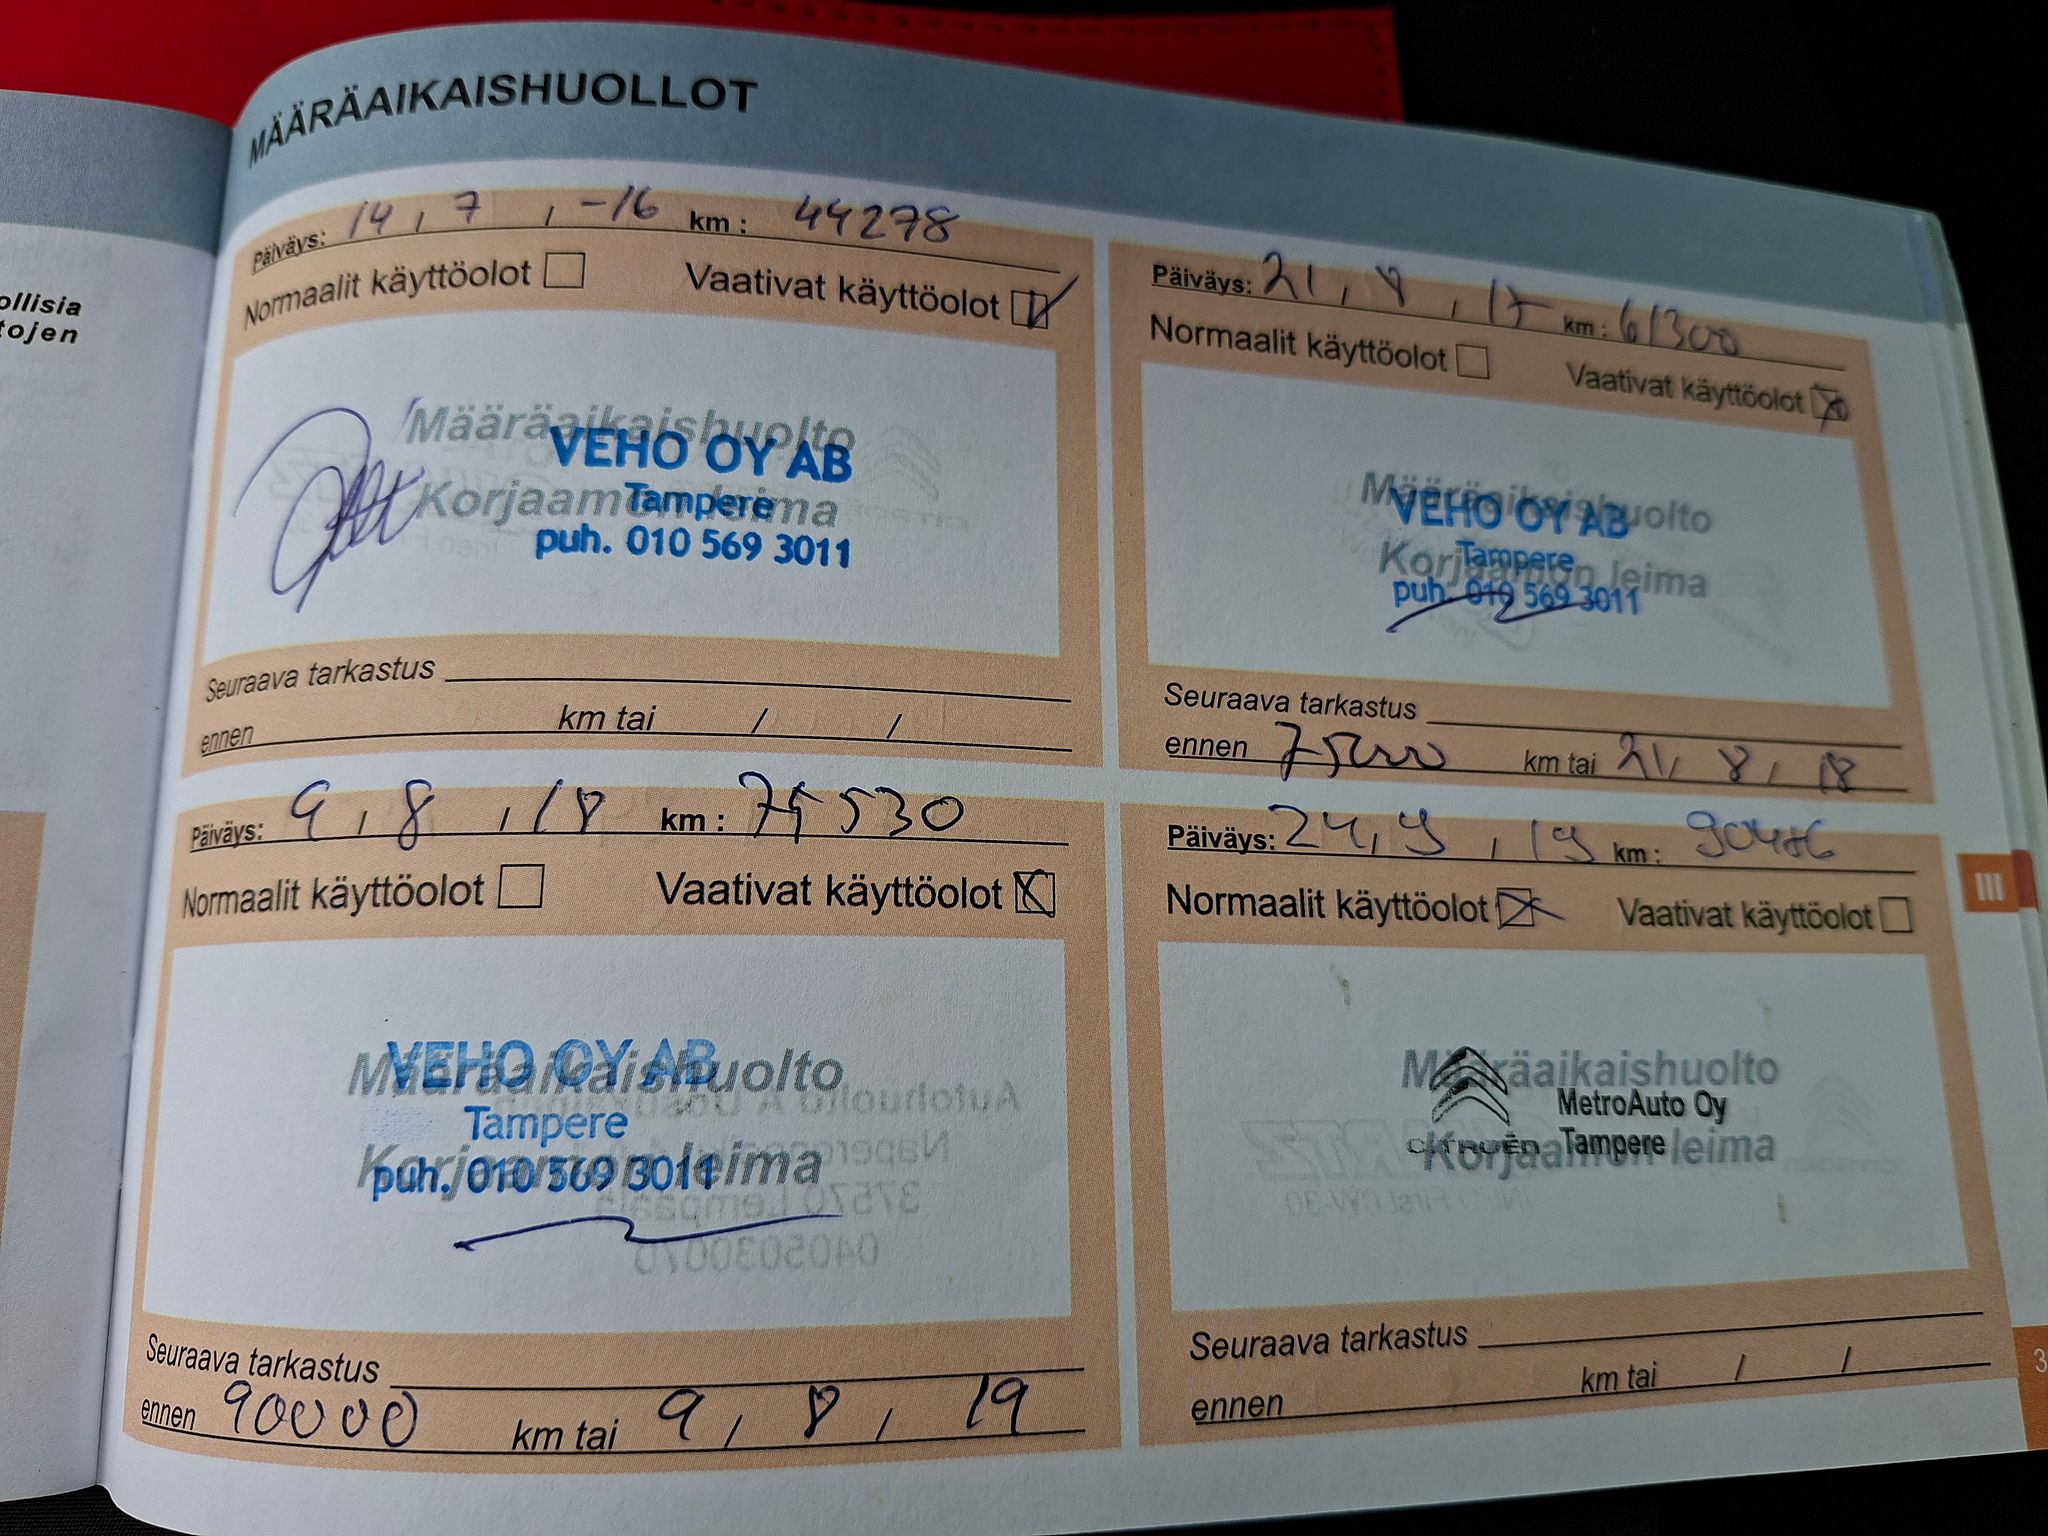 ollisia
tojen
MÄÄRÄAIKAISHUOLLOT
Päiväys: 14 , 7 , -16 km : 44278
Normaalit käyttöolot Vaativat käyttöolot
Määräaikaishuolto
VEHO OY AB
Korjaamon leima
Tampere
puh. 010 569 3011
Seuraava tarkastus
ennen km tai / /
Päiväys: 21 , 8 , 17 km : 61300
Normaalit käyttöolot Vaativat käyttöolot
Määräaikaishuolto
VEHO OY AB
Tampere
Korjaamon leima
puh. 010 569 3011
Seuraava tarkastus
ennen 75000 km tai 21, 8, 18
Päiväys: 9 , 8 , 18 km : 75530
Normaalit käyttöolot Vaativat käyttöolot
VEHO OY AB
Määräaikaishuolto
Tampere
Korjaamon leima
puh. 010 569 3011
Seuraava tarkastus
ennen 90000 km tai 9 , 8 , 19
Päiväys: 24, 9 , 19 km : 90486
Normaalit käyttöolot Vaativat käyttöolot
Määräaikaishuolto
MetroAuto Oy
CITROËN Tampere
Korjaamon leima
Seuraava tarkastus
ennen km tai / /
III
3